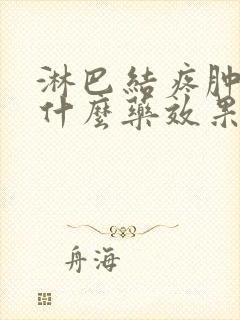 淋巴結疼肿
什麼藥效果
舟海